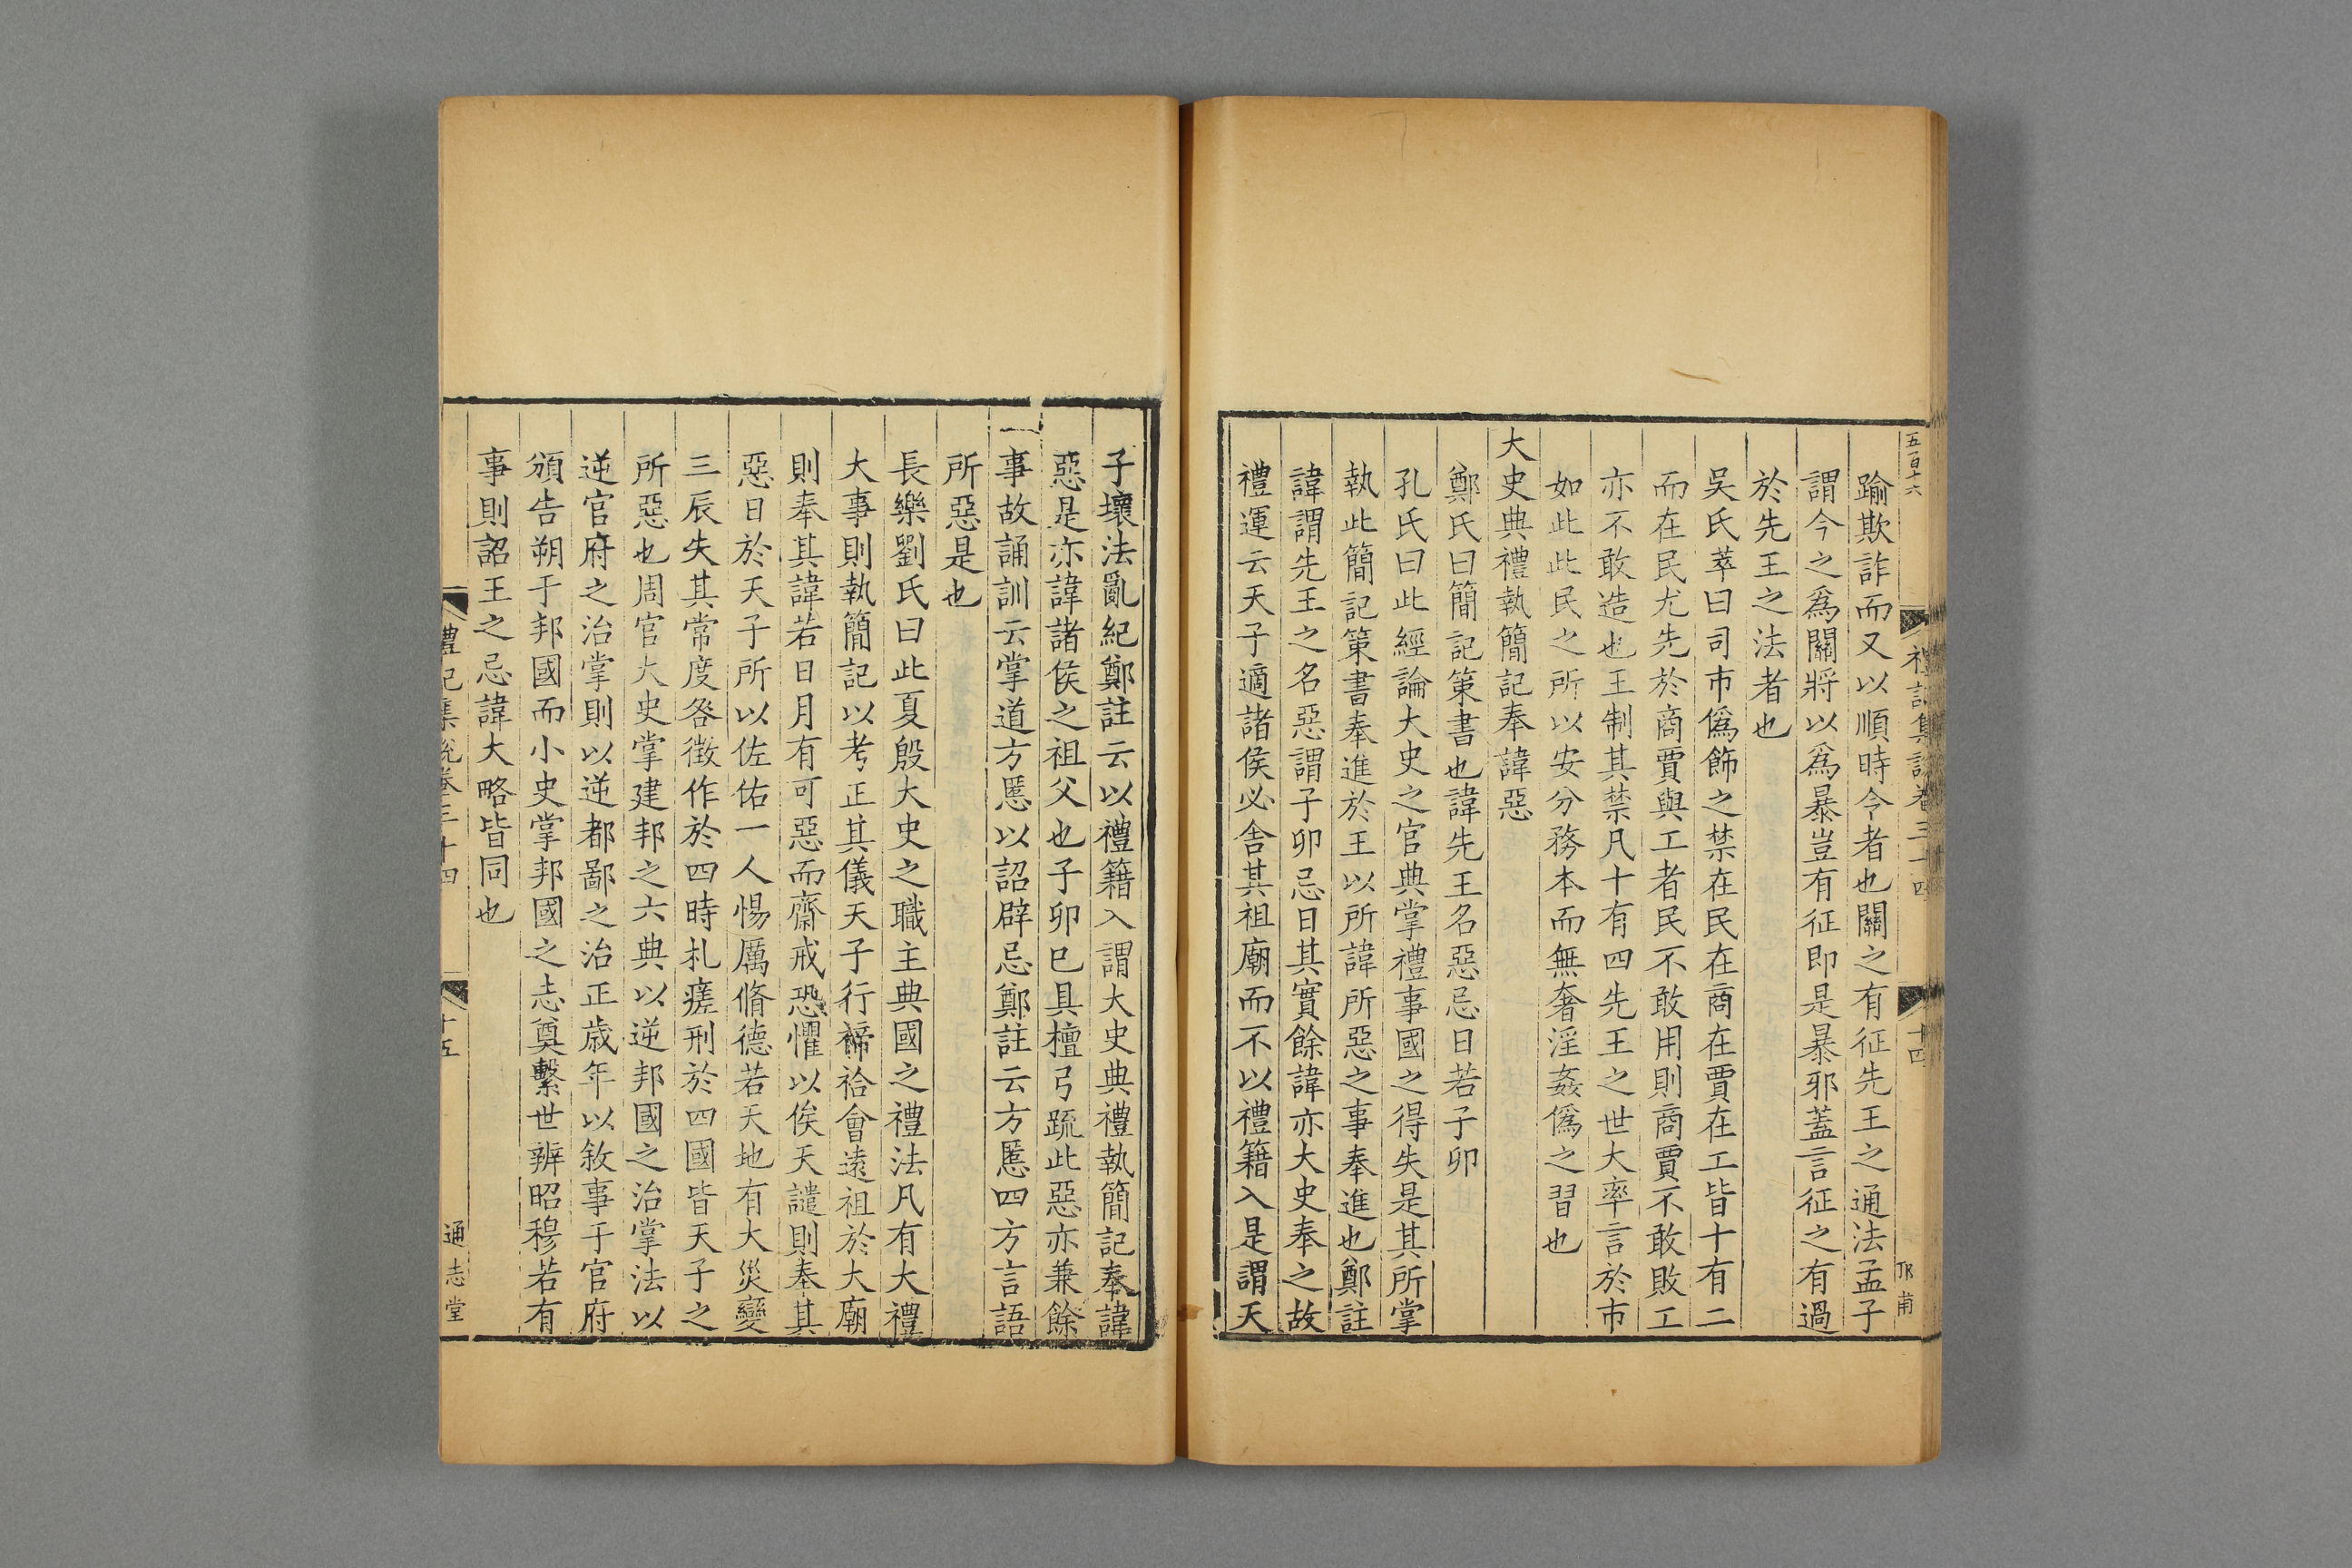 五百十六
禮記集說卷三十四
十四
甫
踰欺詐而又以順時令者也關之有征先王之通法孟子
謂今之爲關將以爲暴豈有征即是暴邪蓋言征之有過
於先王之法者也
吳氏莘曰司市僞飾之禁在民在商在賈在工皆十有二
而在民尤先於商賈與工者民不敢用則商賈不敢敗工
亦不敢造也王制其禁凡十有四先王之世大率言於市
如此此民之所以安分務本而無奢淫姦僞之習也
大史典禮執簡記奉諱惡
鄭氏曰簡記策書也諱先王名惡忌日若子卯
孔氏曰此經論大史之官典掌禮事國之得失是其所掌
執此簡記策書奉進於王以所諱所惡之事奉進也鄭註
諱謂先王之名惡謂子卯忌日其實餘諱亦大史奉之故
禮運云天子適諸侯必舍其祖廟而不以禮籍入是謂天
子壞法亂紀鄭註云以禮籍入謂大史典禮執簡記奉諱
惡是亦諱諸侯之祖父也子卯巳具檀弓疏此惡亦兼餘
事故誦訓云掌道方慝以詔辟忌鄭註云方慝四方言語
所惡是也
長樂劉氏曰此夏殷大史之職主典國之禮法凡有大禮
大事則執簡記以考正其儀天子行禘祫會遠祖於大廟
則奉其諱若日月有可惡而齋戒恐懼以俟天譴則奉其
惡日於天子所以佐佑一人惕厲脩德若天地有大災變
三辰失其常度咎徵作於四時札瘥刑於四國皆天子之
所惡也周官大史掌建邦之六典以逆邦國之治掌法以
逆官府之治掌則以逆都鄙之治正歲年以敘事于官府
頒告朔于邦國而小史掌邦國之志奠繫世辨昭穆若有
事則詔王之忌諱大略皆同也
禮記集說卷三十四
十五
通志堂